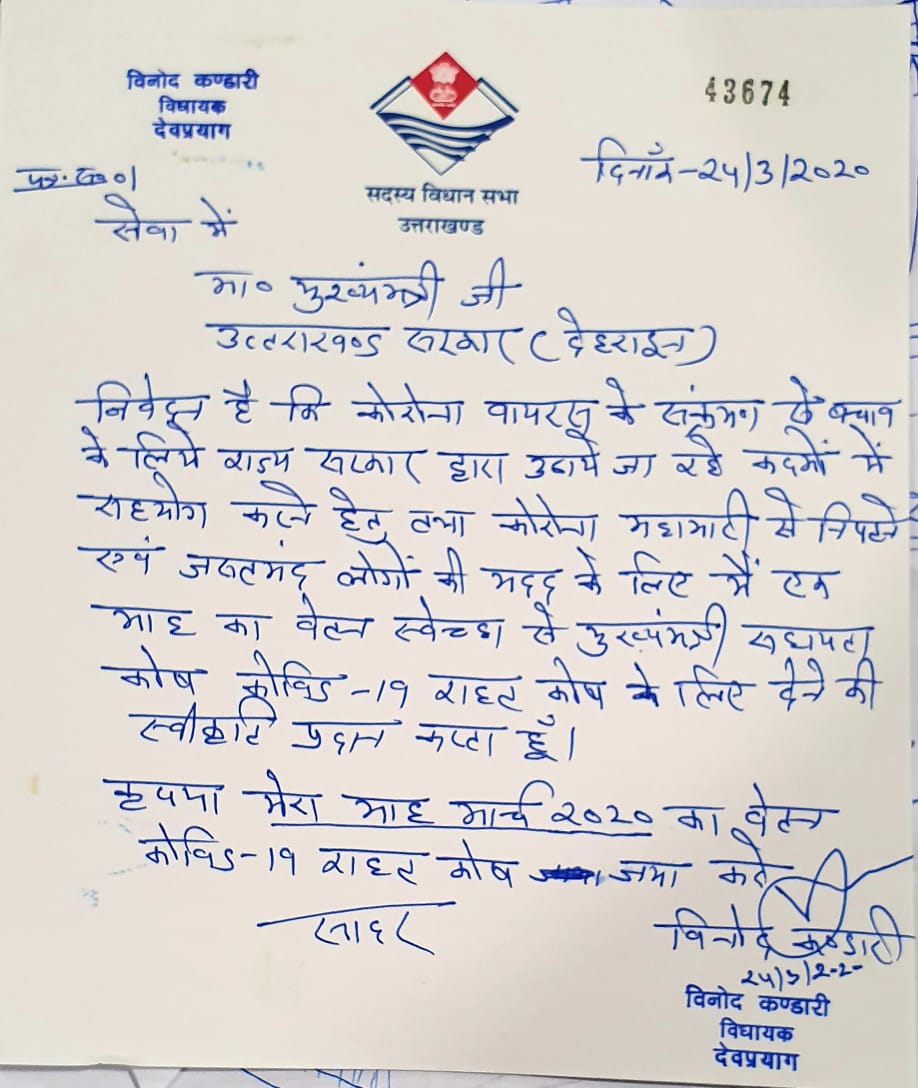 विनोद कण्डारी
विधायक
देवप्रयाग
43674
सदस्य विधान सभा
उत्तराखण्ड
दिनाँक-24/3/2020
सेवा में
मा० मुख्यमंत्री जी
उत्तराखण्ड सरकार (देहरादून)
निवेदन है कि कोरोना वायरस के संक्रमण से बचाव
के लिये राज्य सरकार द्वारा उठाये जा रहे कदमों में
सहयोग करने हेतु तथा कोरोना महामारी से निपटने
एवं जरूतमंद लोगों की मदद के लिए मैं एक
माह का वेतन स्वेच्छा से मुख्यमंत्री सहायता
कोष कोविड-19 राहत कोष के लिए देने की
स्वीकृति प्रदान करता हूँ।
कृपया मेरा माह मार्च 2020 का वेतन
कोविड-19 राहत कोष जमा करें
सादर
विनोद कण्डारी
विनोद कण्डारी
विधायक
देवप्रयाग